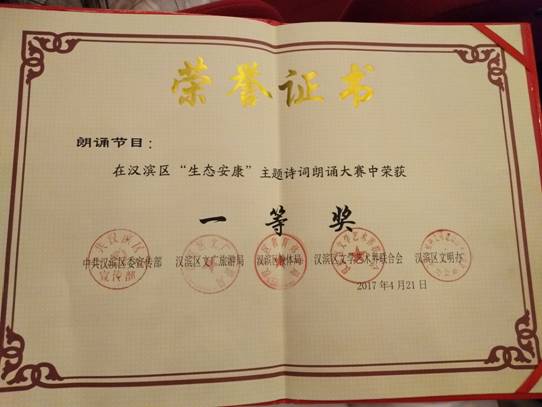 荣誉证书
朗诵节目：
在汉滨区“生态安康”主题诗词朗诵大赛中荣获
一等奖
中共汉滨区委宣传部 汉滨区文广旅游局 汉滨区教体局 汉滨区文学艺术界联合会 汉滨区文明办
2017年4月21日